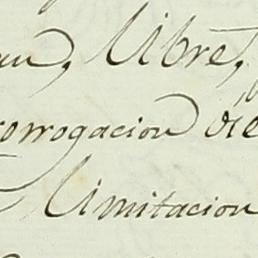 an, Libre,
orrogacion de
Limitacion